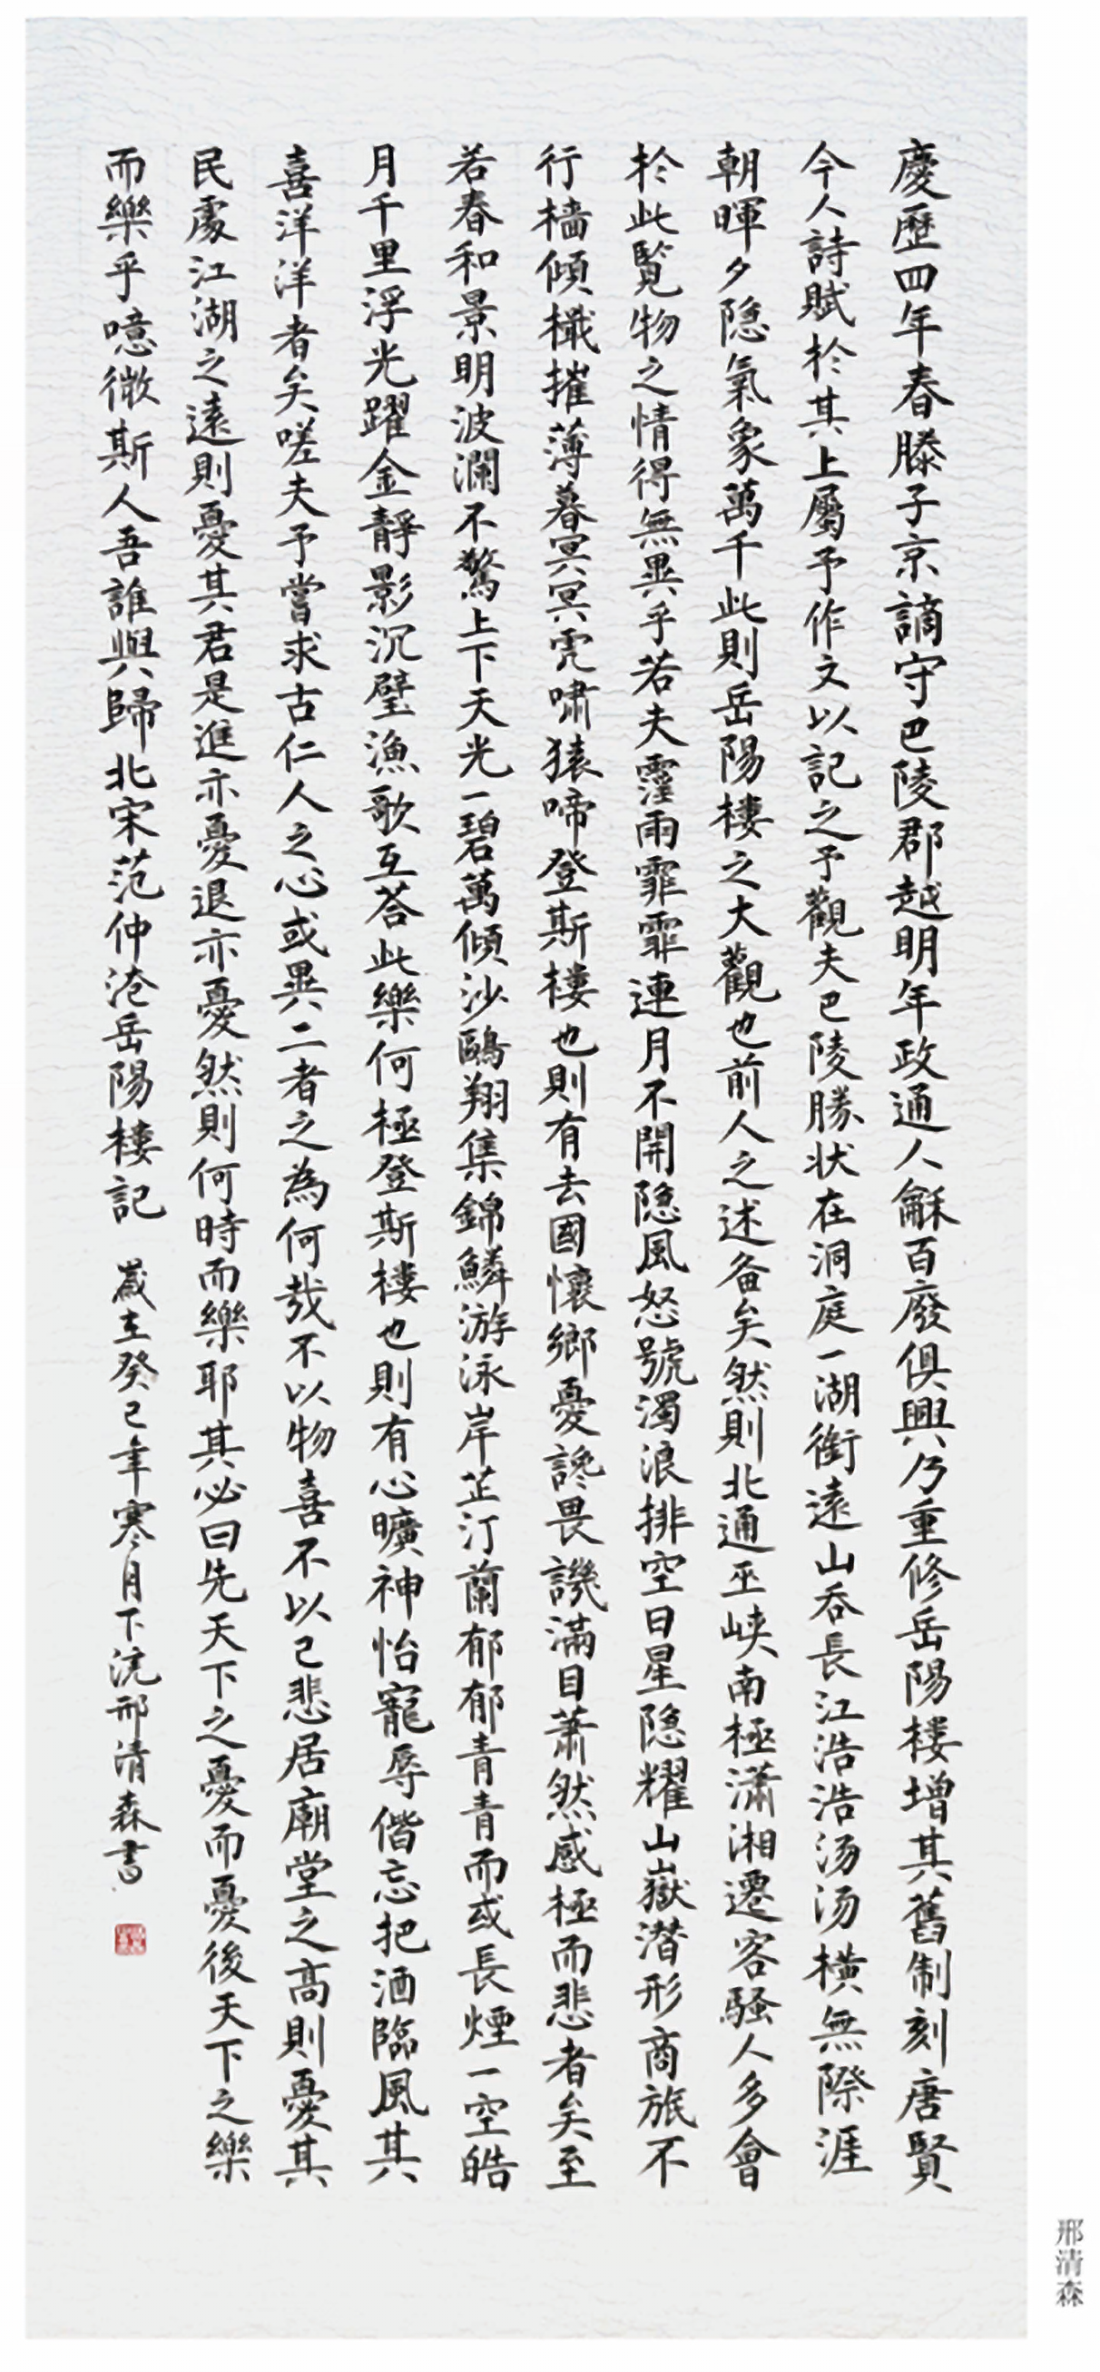 慶歷四年春滕子京謫守巴陵郡越明年政通人龢百廢俱興乃重修岳陽樓增其舊制刻唐賢
今人詩賦於其上屬予作文以記之予觀夫巴陵勝狀在洞庭一湖銜遠山吞長江浩浩汤汤橫無際涯
朝暉夕隐氣象萬千此則岳陽樓之大觀也前人之述备矣然則北通巫峡南極瀟湘遷客騷人多會
於此覧物之情得無異乎若夫霪雨霏霏連月不開隐風怒號濁浪排空日星隐耀山嶽潜形商旅不
行檣傾檝摧薄暮冥冥虎啸猿啼登斯樓也則有去國懷鄉憂讒畏譏滿目萧然感極而悲者矣至
若春和景明波瀾不驚上下天光一碧萬傾沙鷗翔集錦鱗游泳岸芷汀蘭郁郁青青而或長煙一空皓
月千里浮光躍金靜影沉璧漁歌互荅此樂何極登斯樓也則有心曠神怡寵辱偕忘把酒臨風其
喜洋洋者矣嗟夫予嘗求古仁人之心或異二者之為何哉不以物喜不以己悲居廟堂之高則憂其
民處江湖之遠則憂其君是進亦憂退亦憂然則何時而樂耶其必曰先天下之憂而憂後天下之樂
而樂乎噫微斯人吾誰與歸北宋范仲淹岳陽樓記 歲在癸巳年寒月下浣邢清森書
邢清森